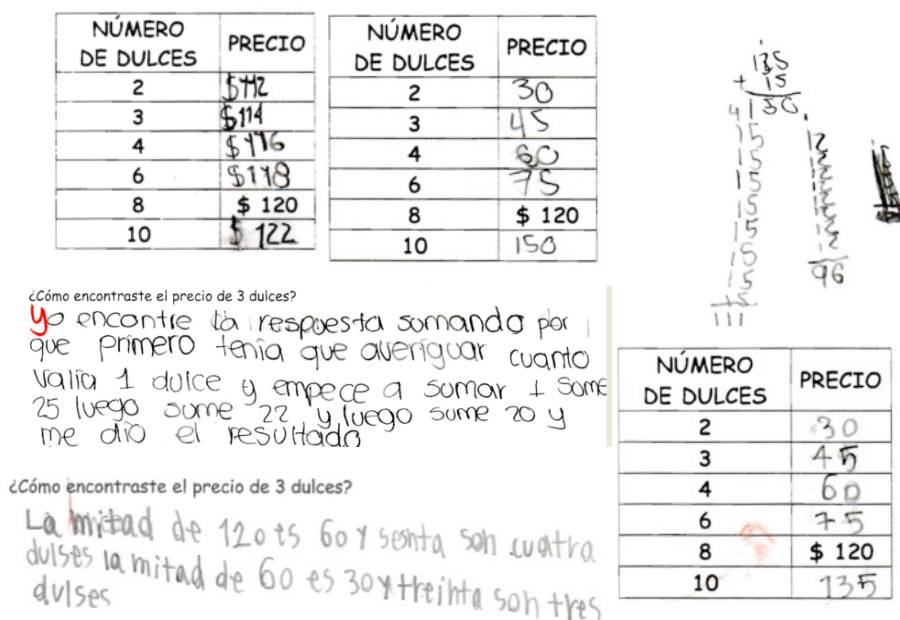 NÚMERO DE DULCES PRECIO
2 $112
3 $114
4 $116
6 $118
8 $ 120
10 $ 122
NÚMERO DE DULCES PRECIO
2 30
3 45
4 60
6 75
8 $ 120
10 150
135
+ 15
150
96
111
¿Cómo encontraste el precio de 3 dulces?
yo encontre la respuesta sumando por
que primero tenia que averiguar cuanto
valia 1 dulce y empece a sumar + Some
25 luego sume 22 y luego sume 20 y
me dio el resultado
NÚMERO DE DULCES PRECIO
2 30
3 45
4 60
6 75
8 $ 120
10 135
¿Cómo encontraste el precio de 3 dulces?
La mitad de 120 es 60 y sesnta son cuatra
dulses la mitad de 60 es 30 y treinta son tres
dulses